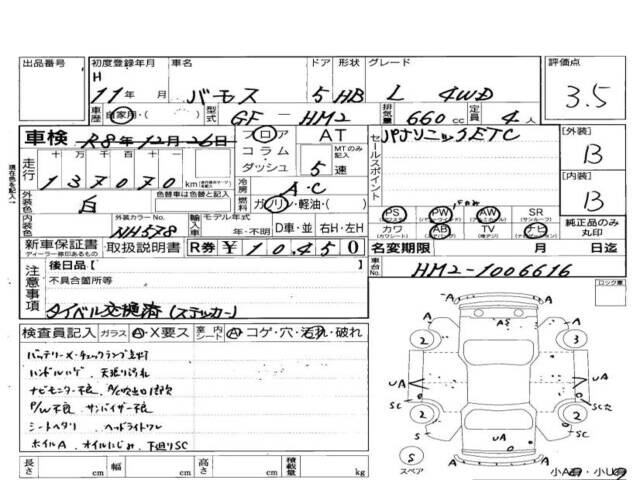 出品番号 初度登録年月 車名 ドア 形状 グレード 評価点
H 11年 月 バモス 5 HB L 4WD 3.5
車歴 自家用・( ) 型式 GF - HM2 排気量 660 cc 定員 4人
車検 R8年12月26日 フロア AT パナソニックETC [外装]
現在色を記入
走行 十 万 千 百 十 一 コラム MTのみ記入 セールスポイント B
137070 km ダッシュ 5速 [内装]
冷房 A・C B
外装色 白 色替車は色替と記入 燃料 ガソリン・軽油・( ) PS PW AW SR
純正品のみ丸印
内装色 外装カラーNo. NH578 輸入車 モデル年式 年・不明 D車・並 右H・左H カワ AB TV ナビ
新車保証書・取扱説明書 R券 ¥10,450 名変期限 月 日迄
ディーラー捺印あるもの
注意事項 後日品【 車台No. HM2-1006616
不具合箇所等 ロック車
タイベル交換済(ステッカー)
検査員記入 ガラス A・X要ス 室内シート A・コゲ・穴・汚れ・破れ
バッテリーX・チェックランプ点灯
ハンドルハゲ 天張り汚れ
ナビモニター不良 A/C吹出口
P/W不良 サンバイザー不良
シートヘタリ ヘッドライトワレ
ホイルA オイルにじみ 下廻りSC
A A AS A A
2 3
UA UA
SC 2 2 SC
S UA S
A A
S スペア 小A・小U
長さ cm 幅 cm 高さ cm 積載量 kg